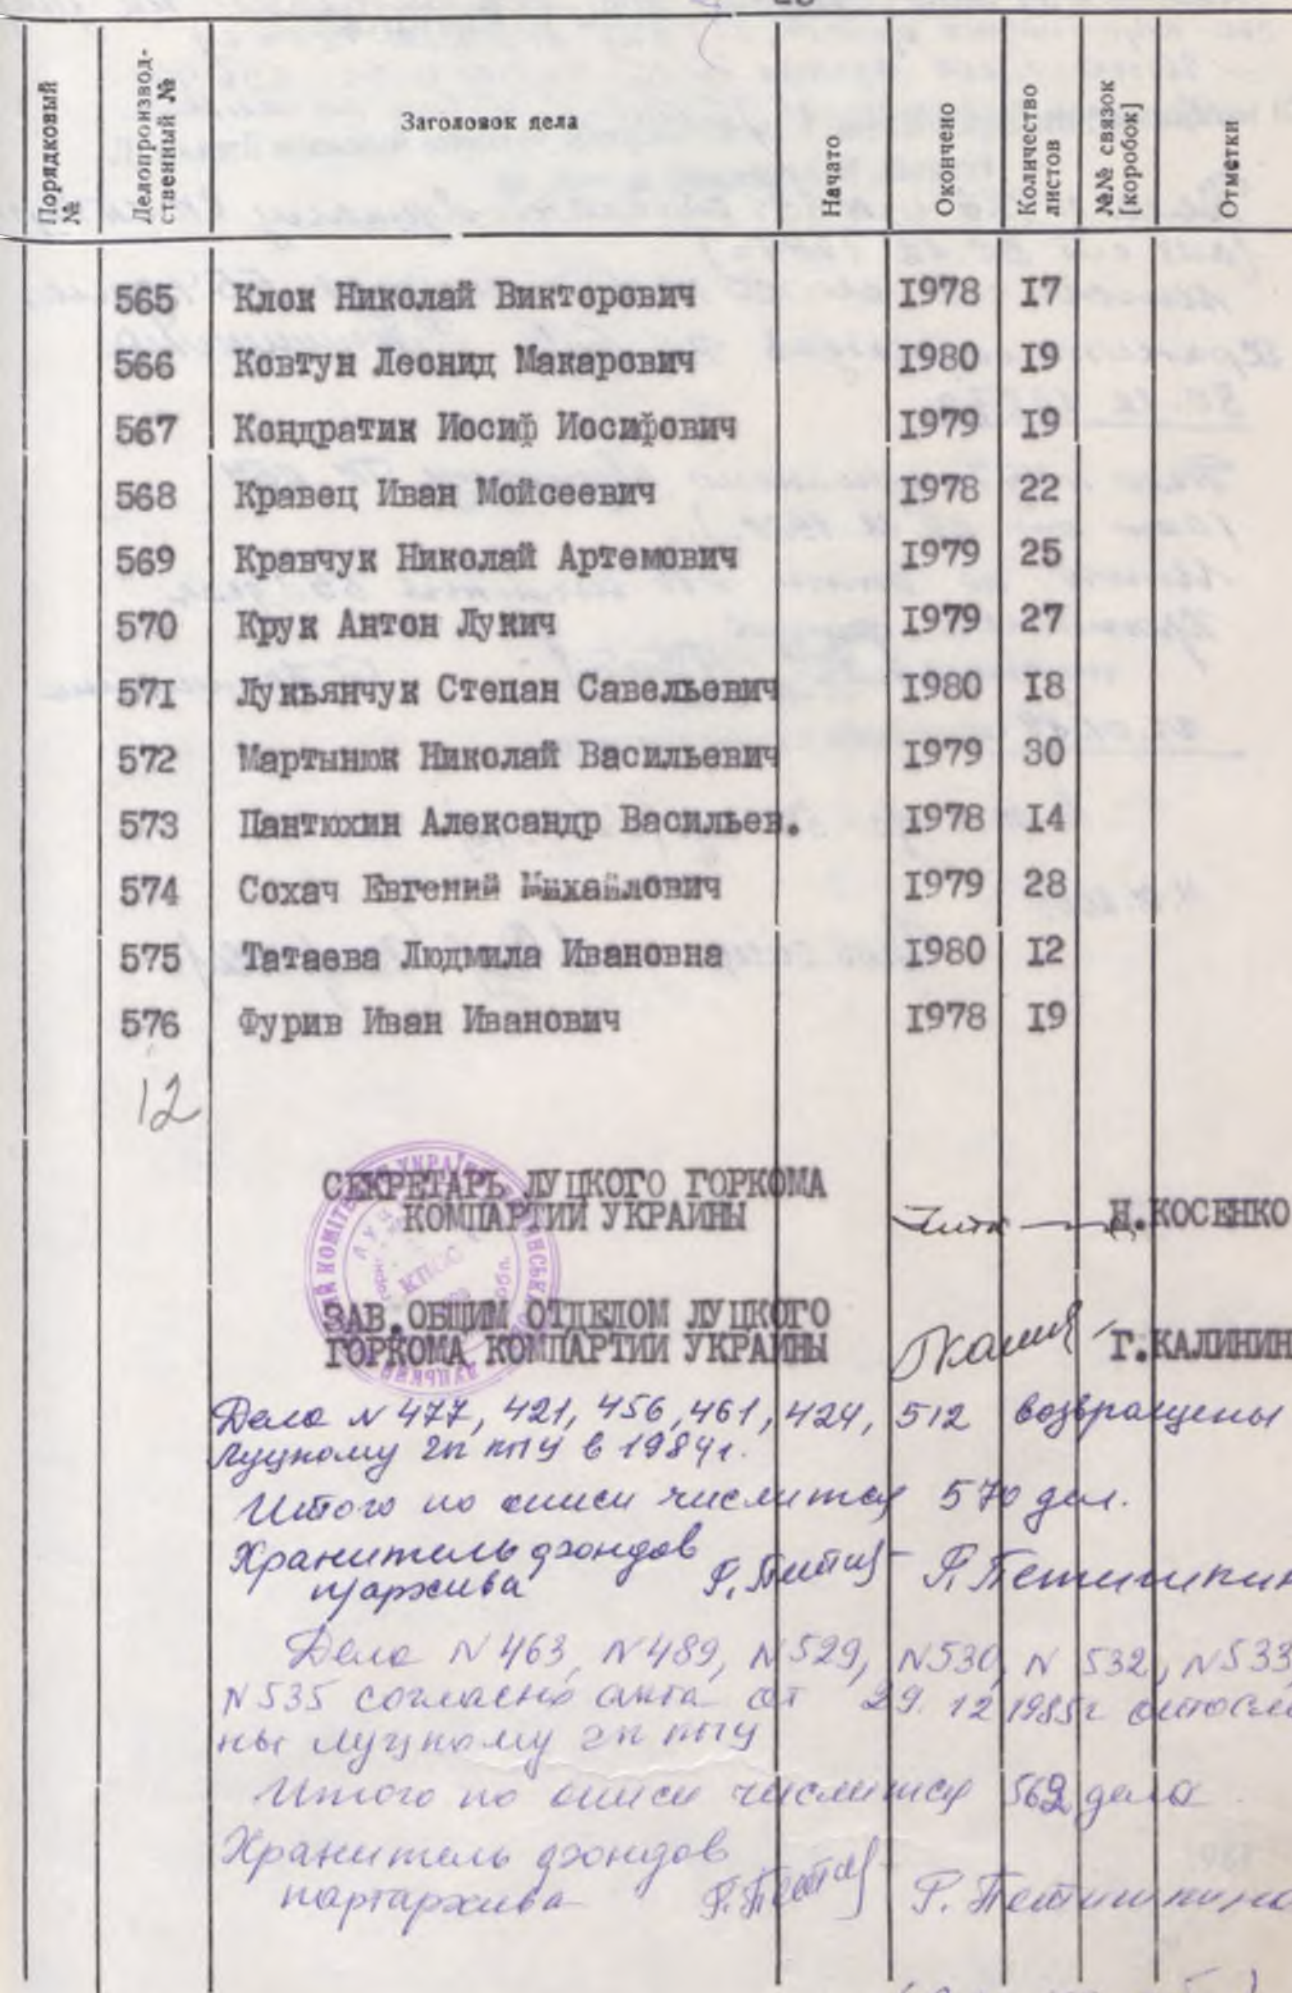 Порядковый №
Делопроизвод-
ственный №
Заголовок дела
Начато
Окончено
Количество листов
№№ связок [коробок]
Отметки
565 Клок Николай Викторович I978 I7
566 Ковтун Леонид Макарович I980 I9
567 Кондратик Иосиф Иосифович I979 I9
568 Кравец Иван Мойсеевич I978 22
569 Кравчук Николай Артемович I979 25
570 Крук Антон Лукич I979 27
57I Лукьянчук Степан Савельевич I980 I8
572 Мартынюк Николай Васильевич I979 30
573 Пантюхин Александр Васильев. I978 I4
574 Сохач Евгений Михайлович I979 28
575 Татаева Людмила Ивановна I980 I2
576 Фурив Иван Иванович I978 I9
12
СЕКРЕТАРЬ ЛУЦКОГО ГОРКОМА
КОМПАРТИИ УКРАИНЫ Н.КОСЕНКО
ЗАВ.ОБЩИМ ОТДЕЛОМ ЛУЦКОГО
ГОРКОМА КОМПАРТИИ УКРАИНЫ Г.КАЛИНИН
Дела N 477, 421, 456, 461, 424, 512 возвращены
Луцкому гк кпу в 1984г.
Итого по описи числится 570 дел.
Хранитель фондов
п/архива
Дела N 463, N 489, N 529, N 530, N 532, N 533
N 535 согласно акта от 29.12 1985г отосла
ны Луцкому гк кпу
Итого по описи числится 562 дела
Хранитель фондов
партархива